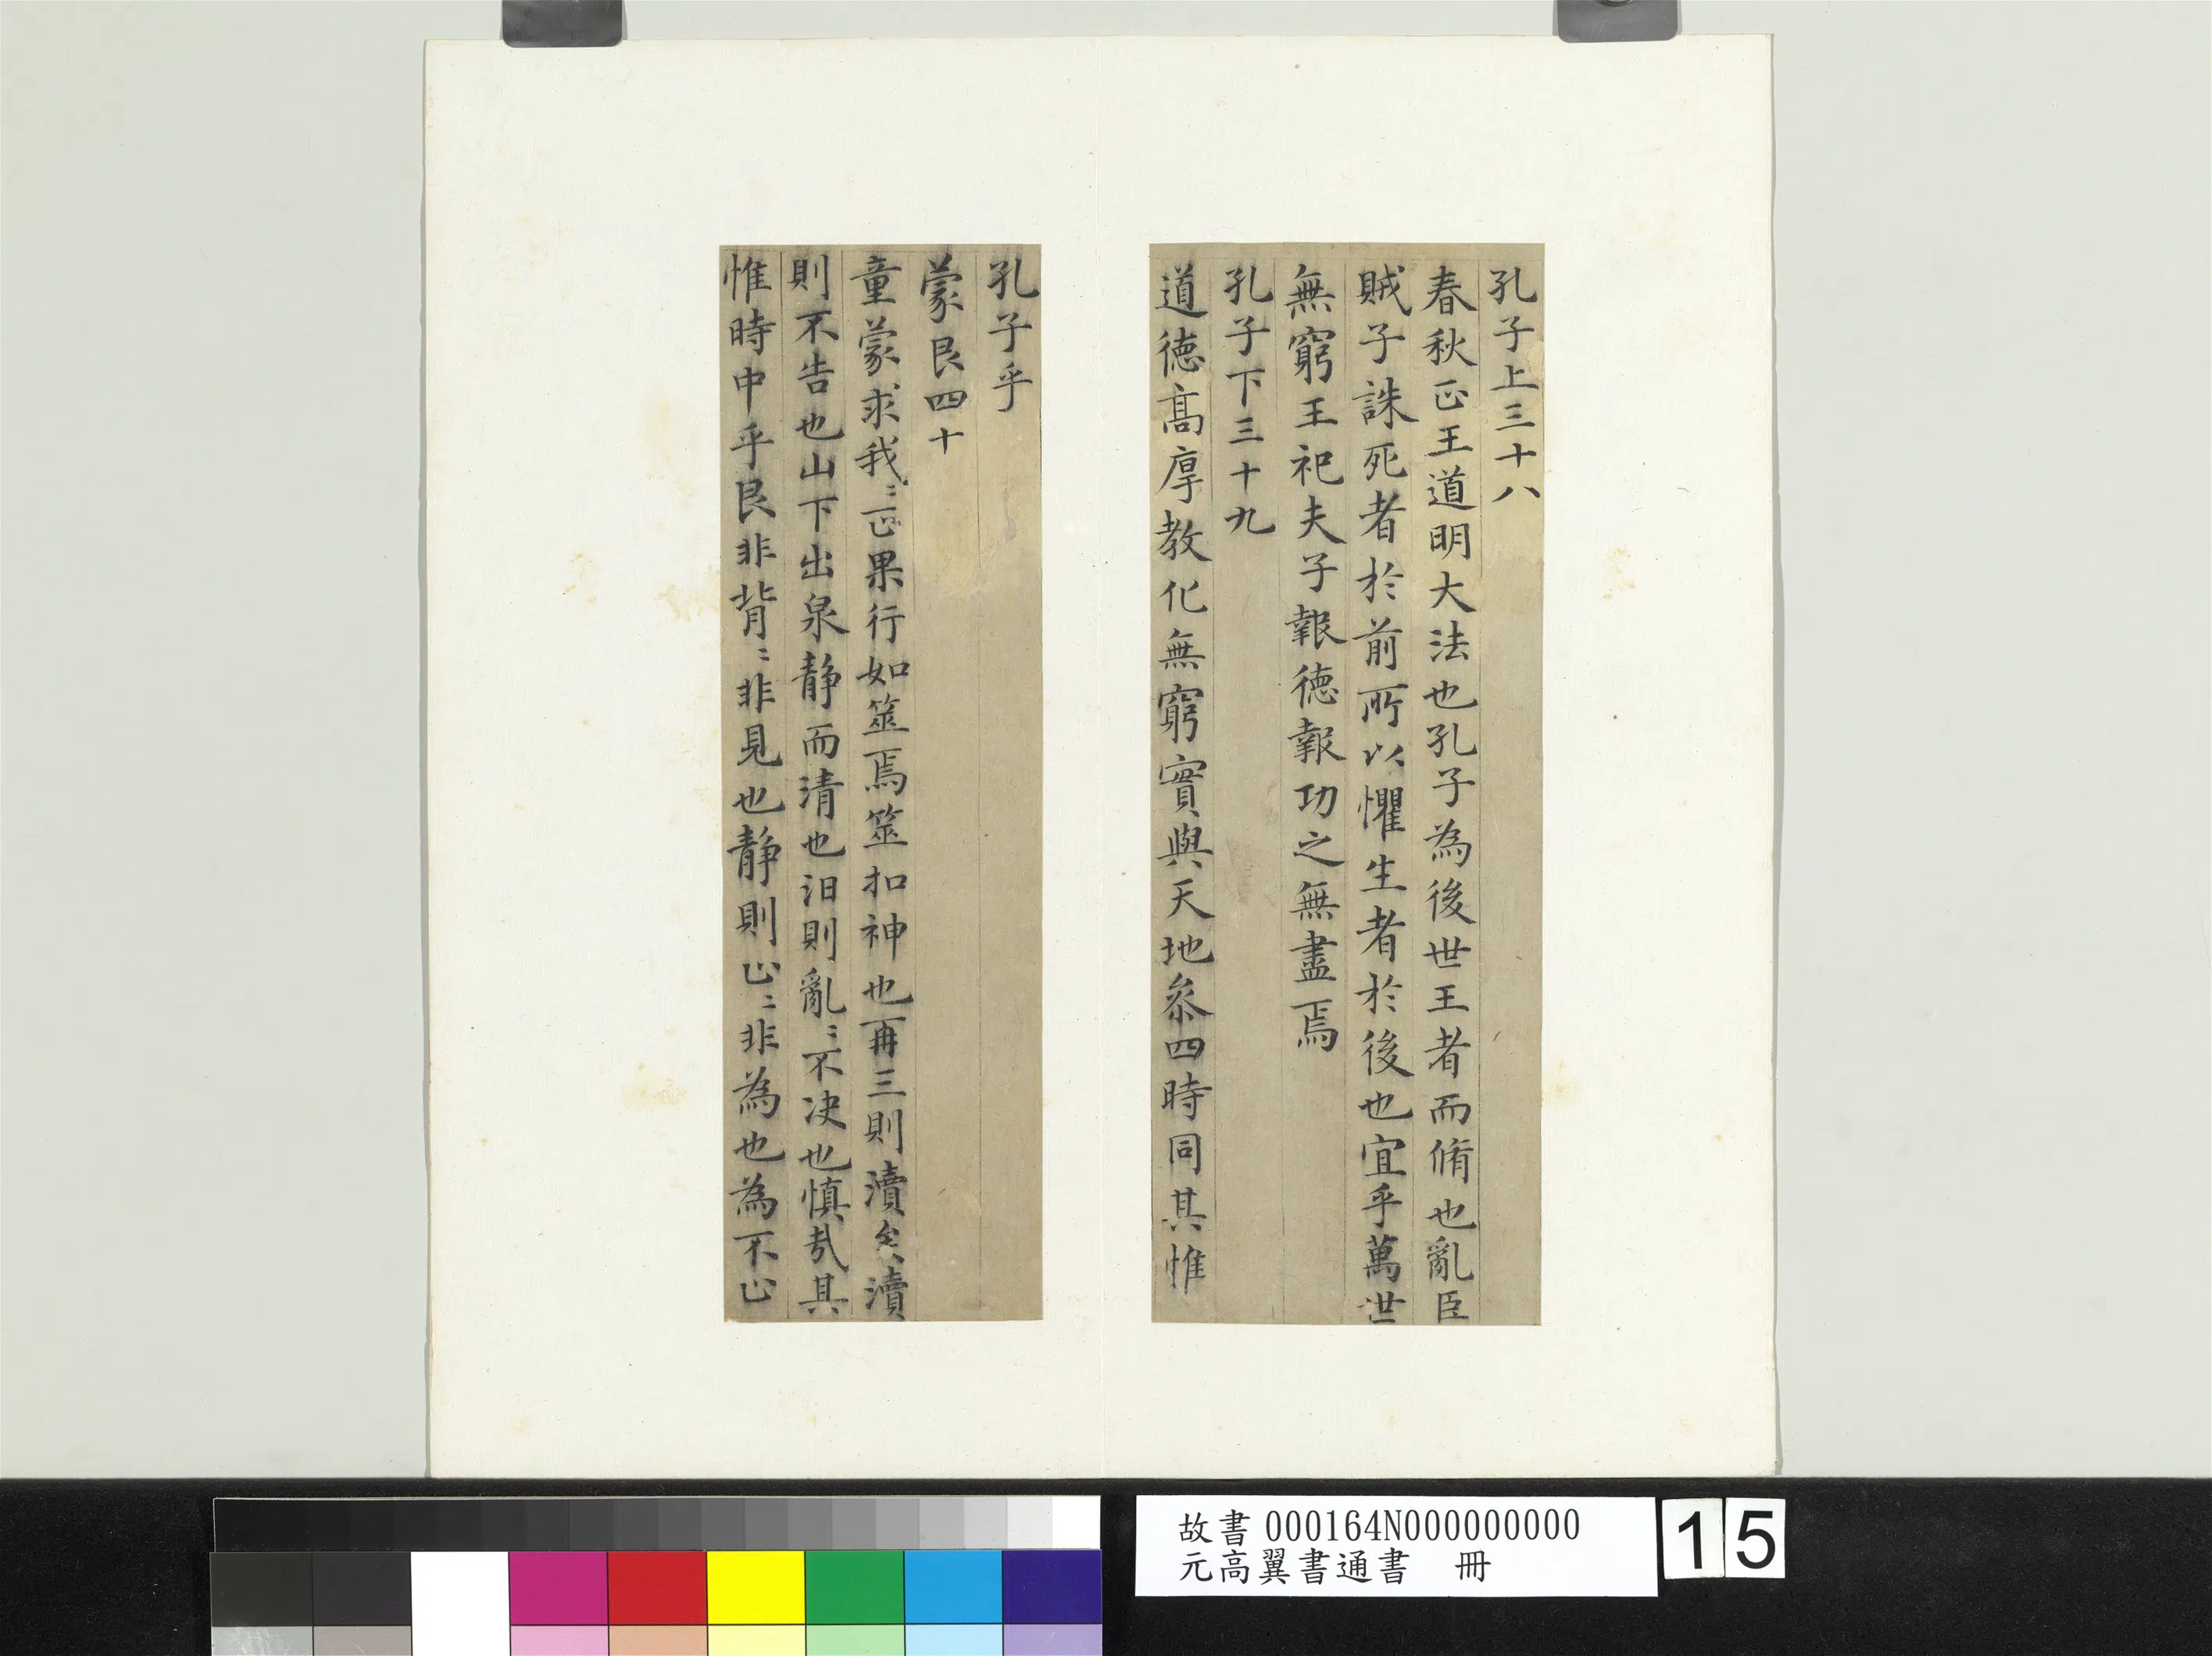 孔子上三十八
春秋正王道明大法也孔子為後世王者而脩也亂臣
賊子誅死者於前所以懼生者於後也宜乎萬世
無窮王祀夫子報德報功之無盡焉
孔子下三十九
道德高厚教化無窮實與天地叅四時同其惟
孔子乎
蒙艮四十
童蒙求我〻正果行如筮焉筮扣神也再三則瀆矣瀆
則不告也山下出泉静而清也汩則亂〻不决也慎哉其
惟時中乎艮非背〻非見也静則止〻非為也為不止
故書000164N000000000
元高翼書通書 冊
15